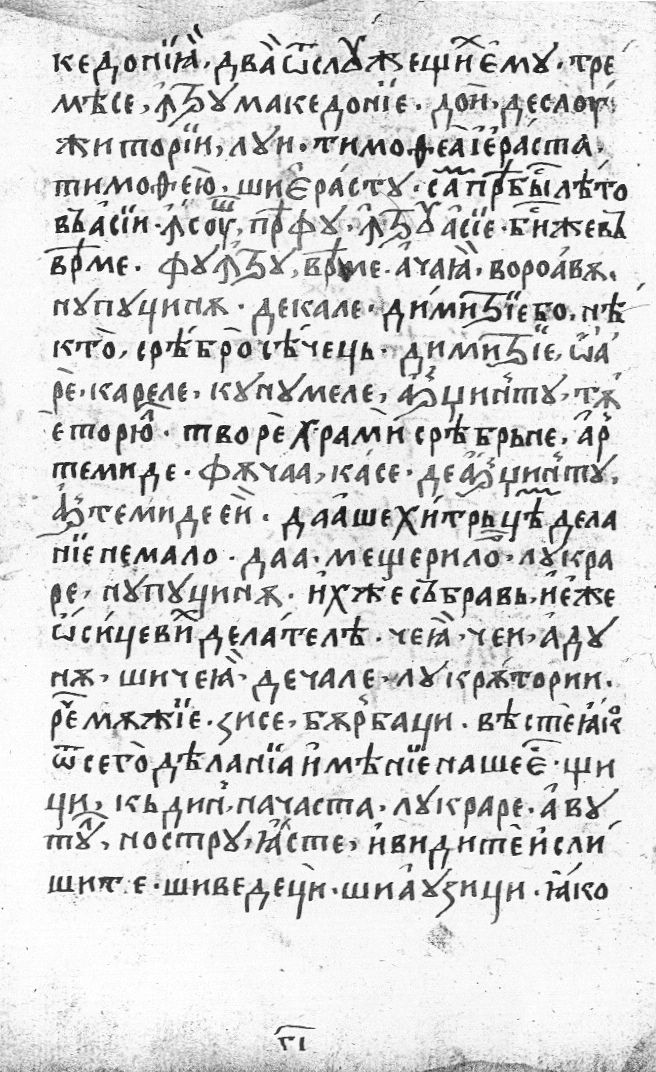 кедонїꙗ҆̀. два̀ ѿслꙋжещи́хь є҆мꙋ. тре
мѣсе, ꙟтрꙋ македонїе. дои̑, деслоу
житорїи, лꙋи. тимоѳеа̀ і҆е҆ра́ста.
тимоѳею̀, шиє҆ра́стꙋ. са́мь прѣбы́ лѣ́то
въа́сїи. ꙟсоу́шь, прѣфꙋ, ꙟтрꙋ а҆сїе. бы́ жевъ
врѣ́ме. фꙋ ꙟтрꙋ, врѣ́ме. а҆чаꙗ҆̀. вороа҆вѫ.
пꙋпꙋцинѫ. декале. дими́трїебо, нѣ
кто̀, срѣ́бро сѣ́чець. дими́трїе, ѡ҆а́
рѐ, кареле, кꙋнꙋмеле, а҆рџинтꙋ, тѫ
е҆торю̑. творѐ хра́мѝ срѣбрьне, а҆р
темиде. фѫчаа, касе. де а҆рџинтꙋ,
а҆ртемидеен̑. дааше хи́трьцѣ́мь дела
нїе немало. даа. мещерило́рь, лꙋкра
ре, пꙋпꙋцинѫ. и҆хже събравь, и҆ е҆же
ѡ҆ си́цеви́хь дела́телѣ. чеꙗ҆̀, чеи, а҆дꙋ
нѫ, шичеꙗ҆̀. дечале, лꙋкрѫ́тории.
рече̑ мѫжїе. ꙁисе, бѫрбаци. вѣсте ꙗ҆́ко
ѿсего̀ дѣланїа и҆мѣнїе наше е҆́. щи
ци, къдин, начаста. лꙋкраре. а҆вꙋ
тꙋ́л, нострꙋ, ꙗ҆сте, и҆видите и҆сли́
шите. шиведеци̏. шиа҆ꙋꙁици. ꙗ҆́ко
гі